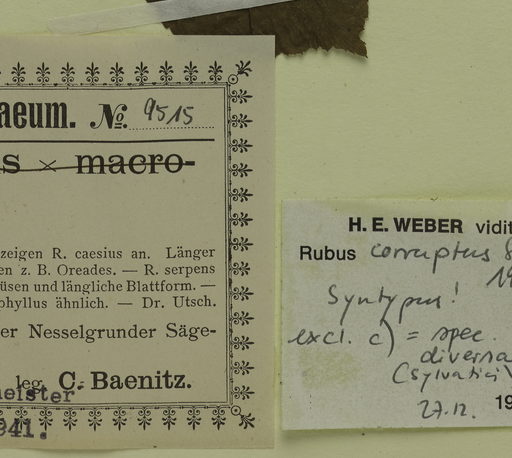 aeum. No. 9515
s × macro-
zeigen R. caesius an. Länger
en z. B. Oreades. — R. serpens
üsen und längliche Blattform. —
phyllus ähnlich. — Dr. Utsch.
er Nesselgrunder Säge-
leg. C. Baenitz.
eister
941.
H. E. WEBER vidit
Rubus corruptus
19
Syntypus!
excl. c) = spec.
diversa
(sylvatici
27.12. 19